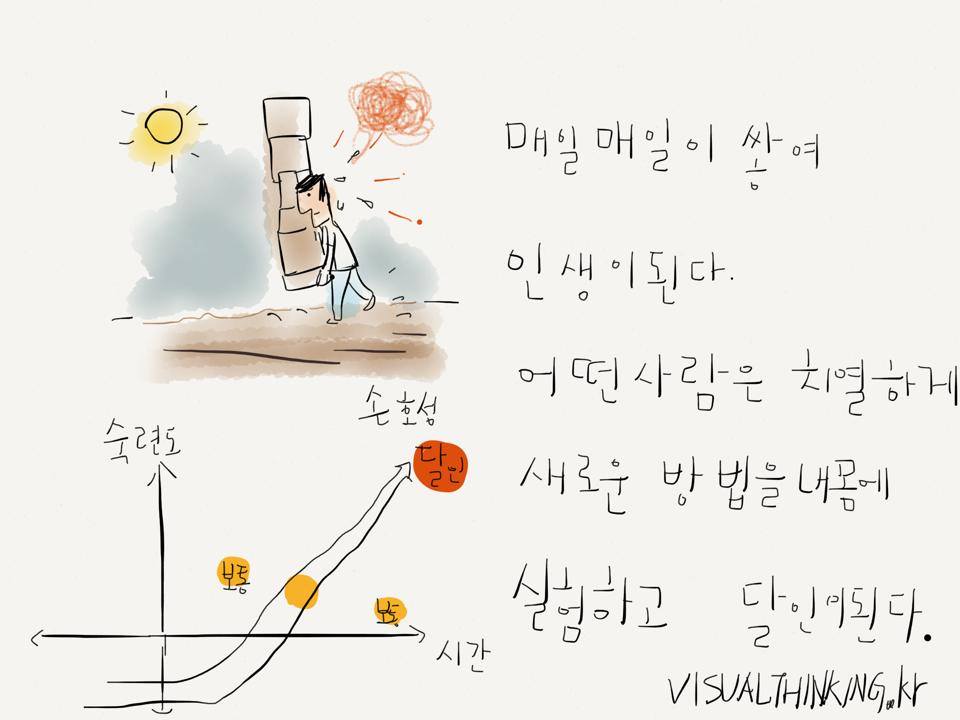 매일 매일이 쌓여
인생이된다.
어떤사람은 치열하게
새로운 방법을 내몸에
실험하고 달인이된다.
손호성
숙련도
달인
보통
보통
시간
VISUALTHINKING.kr